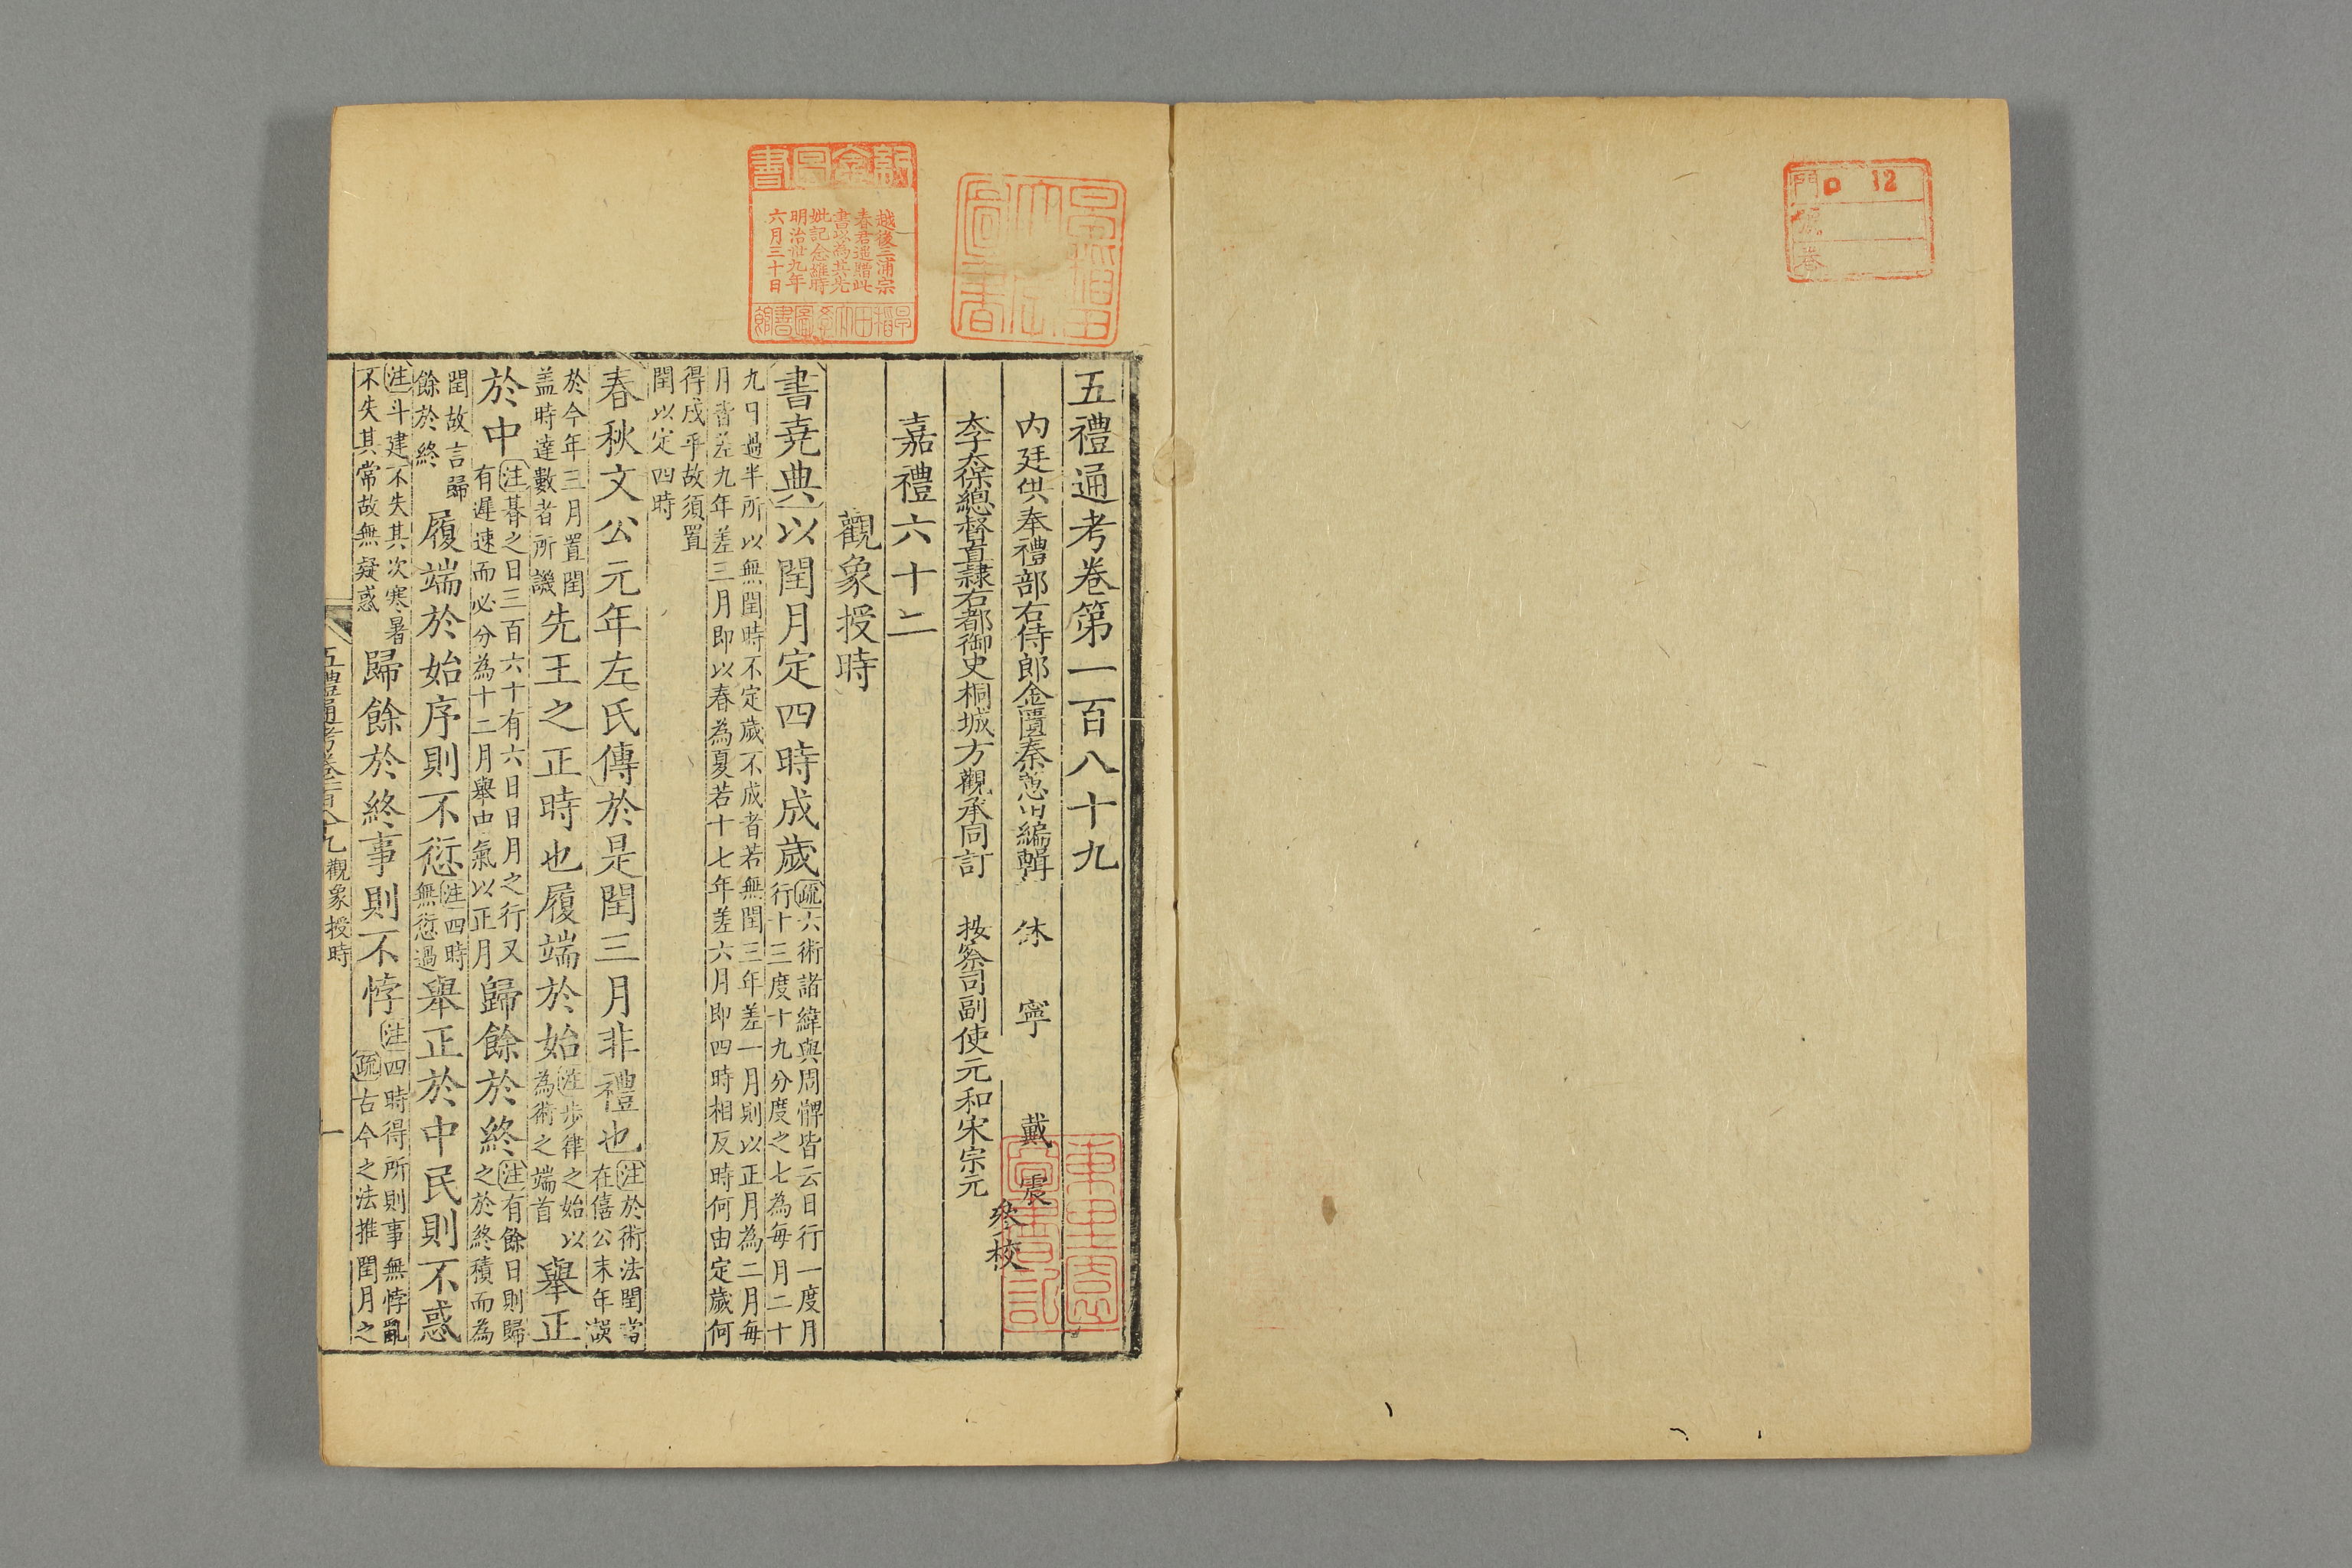 門 ロ 12
號
卷
早稲田
大學
圖書
越後三浦宗
春君遥贈此
書以為其先
妣記念維時
明治卅九年
六月三十日
早稲田大學圖書館
五禮通考卷第一百八十九
内廷供奉禮部右侍郎金匱秦蕙田編輯 休寧 戴震
太子太保總督直隸右都御史桐城方觀承同訂 按察司副使元和宋宗元
參校
嘉禮六十二
觀象授時
書堯典以閏月定四時成歲
疏六術諸緯與周髀皆云日行一度月
行十三度十九分度之七為每月二十
九日過半所以無閏時不定歲不成者若無閏三年差一月則以正月為二月每
月皆差九年差三月即以春為夏若十七年差六月即四時相反時何由定歲何
得成乎故須置
閏以定四時
春秋文公元年左氏傳於是閏三月非禮也
注於術法閏當
在僖公末年誤
於今年三月置閏
盖時達數者所譏
先王之正時也履端於始
注步律之始以
為術之端首
舉正
於中
注朞之日三百六十有六日日月之行又
有遲速而必分為十二月舉中氣以正月
歸餘於終
注有餘日則歸
之於終積而為
閏故言歸
餘於終
履端於始序則不愆
注四時
無愆過
舉正於中民則不惑
注斗建不失其次寒暑
不失其常故無疑惑
歸餘於終事則不悖
注四時得所則事無悖亂
疏古今之法推閏月之
五禮通考卷一百八十九 觀象授時 一